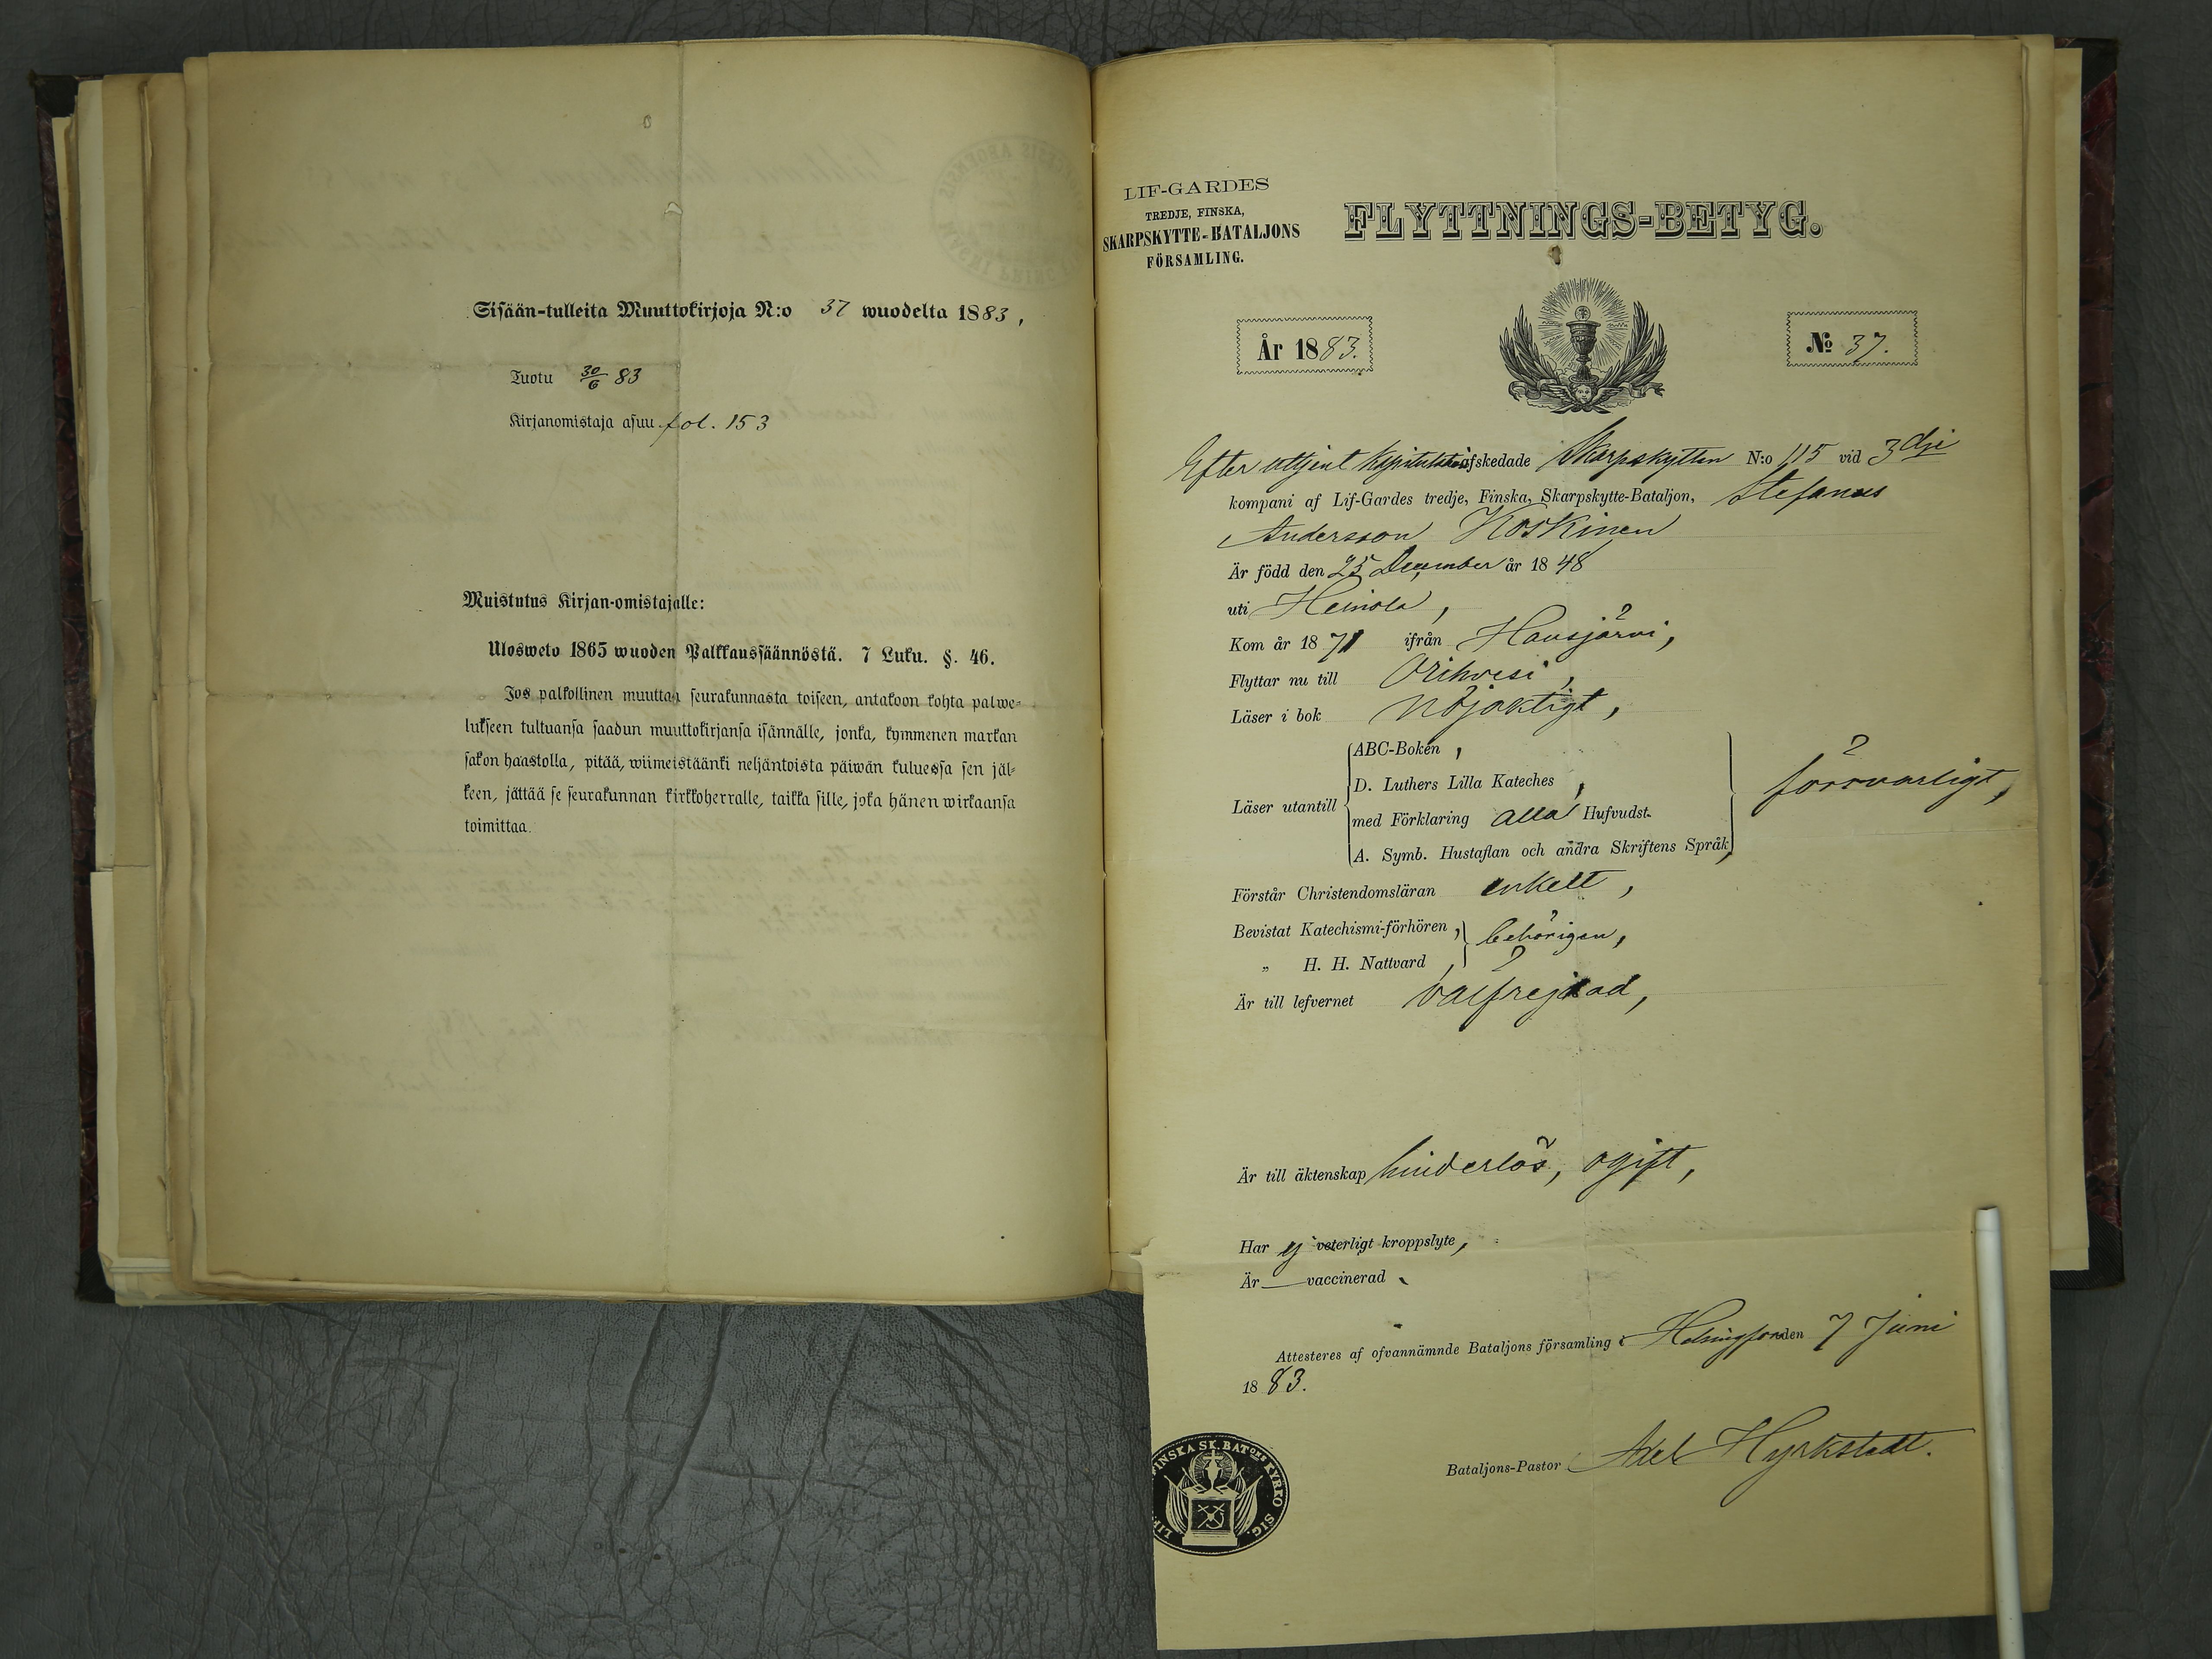 Sisään-tulleita Muuttokirjoja N:o 37 wuodelta 1883,
Tuotu 30/6 83
Kirjanomistaja asuu fol. 153
Muistutus Kirjan-omistajalle:
Ulosweto 1865 wuoden Palkkaussäännöstä. 7 Luku. §. 46.
Jos palkollinen muuttaa seurakunnasta toiseen, antakoon kohta palwe-
lukseen tultuansa saadun muuttokirjansa isännälle, jonka, kymmenen markan
sakon haastolla, pitää, wiimeistäänki neljäntoista päiwän kuluessa sen jäl-
keen, jättää se seurakunnan kirkkoherralle, taikka sille, joka hänen wirkaansa
toimittaa.
LIF-GARDES
TREDJE, FINSKA,
SKARPSKYTTE-BATALJONS
FÖRSAMLING.
FLYTTNINGS-BETYG.
År 1883.
No 37.
Efter uttjent kapitulation afskedade Skarpskytten N:o 115 vid 3dje
kompani af Lif-Gardes tredje, Finska, Skarpskytte-Bataljon, Stefanus
Andersson Koskinen
Är född den 25 December år 1848
uti Heinola,
Kom år 1871 ifrån Hausjärvi,
Flyttar nu till Orihvesi,
Läser i bok nöjaktigt,
Läser utantill
ABC-Boken,
D. Luthers Lilla Kateches,
med Förklaring alla Hufvudst.
A. Symb. Hustaflan och andra Skriftens Språk,
försvarligt,
Förstår Christendomsläran enkelt,
Bevistat Katechismi-förhören, behörigen,
„ H. H. Nattvard,
Är till lefvernet välfrejdad,
Är till äktenskap hinderlös, ogift,
Har ej veterligt kroppslyte,
Är — vaccinerad
Attesteres af ofvannämnde Bataljons församling i Helsingfors den 7 Juni
1883.
Bataljons-Pastor Axel Hyrkstedt.
LIF. FINSKA SK. BATons KYRKO SIG.